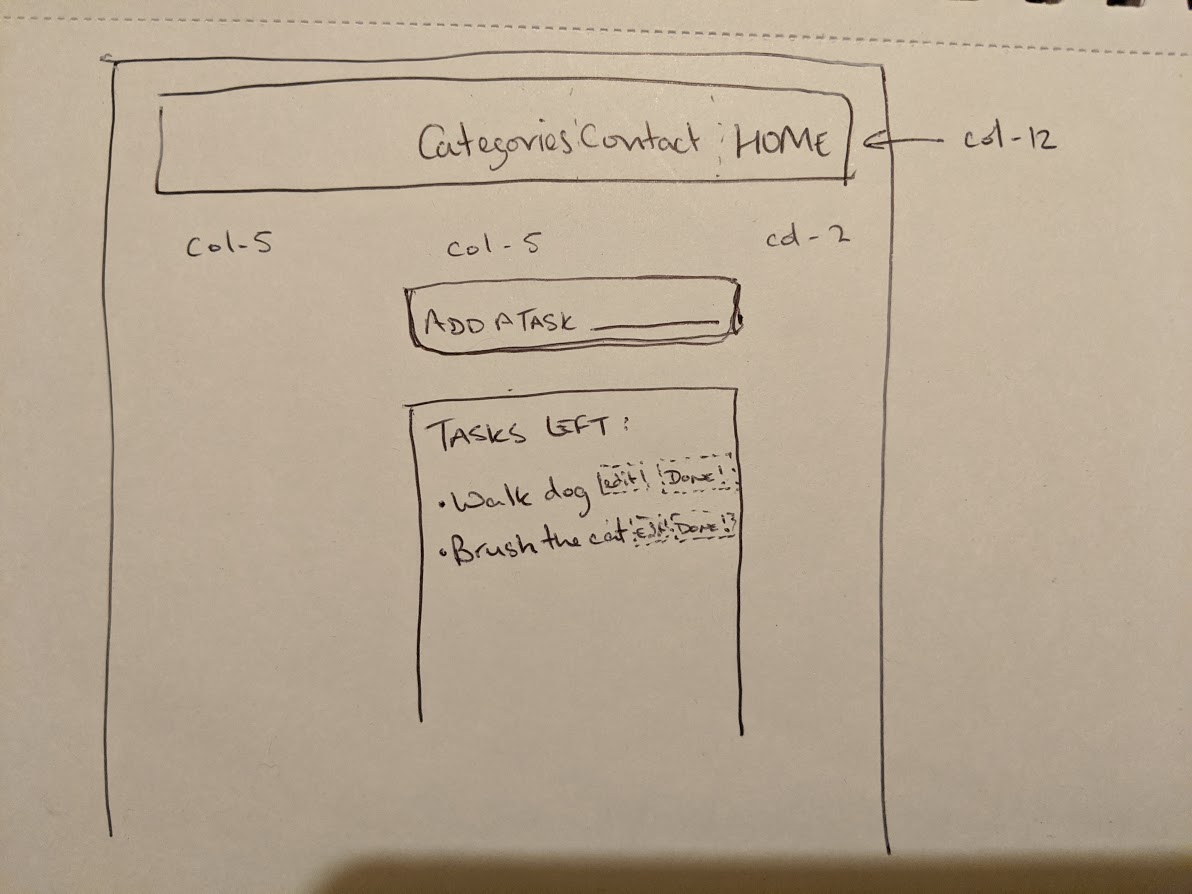 Categories Contact HOME
col-12
col-5 col-5 col-2
ADD A TASK
TASKS LEFT:
• Walk dog edit DONE!
• Brush the cat Edit DONE!